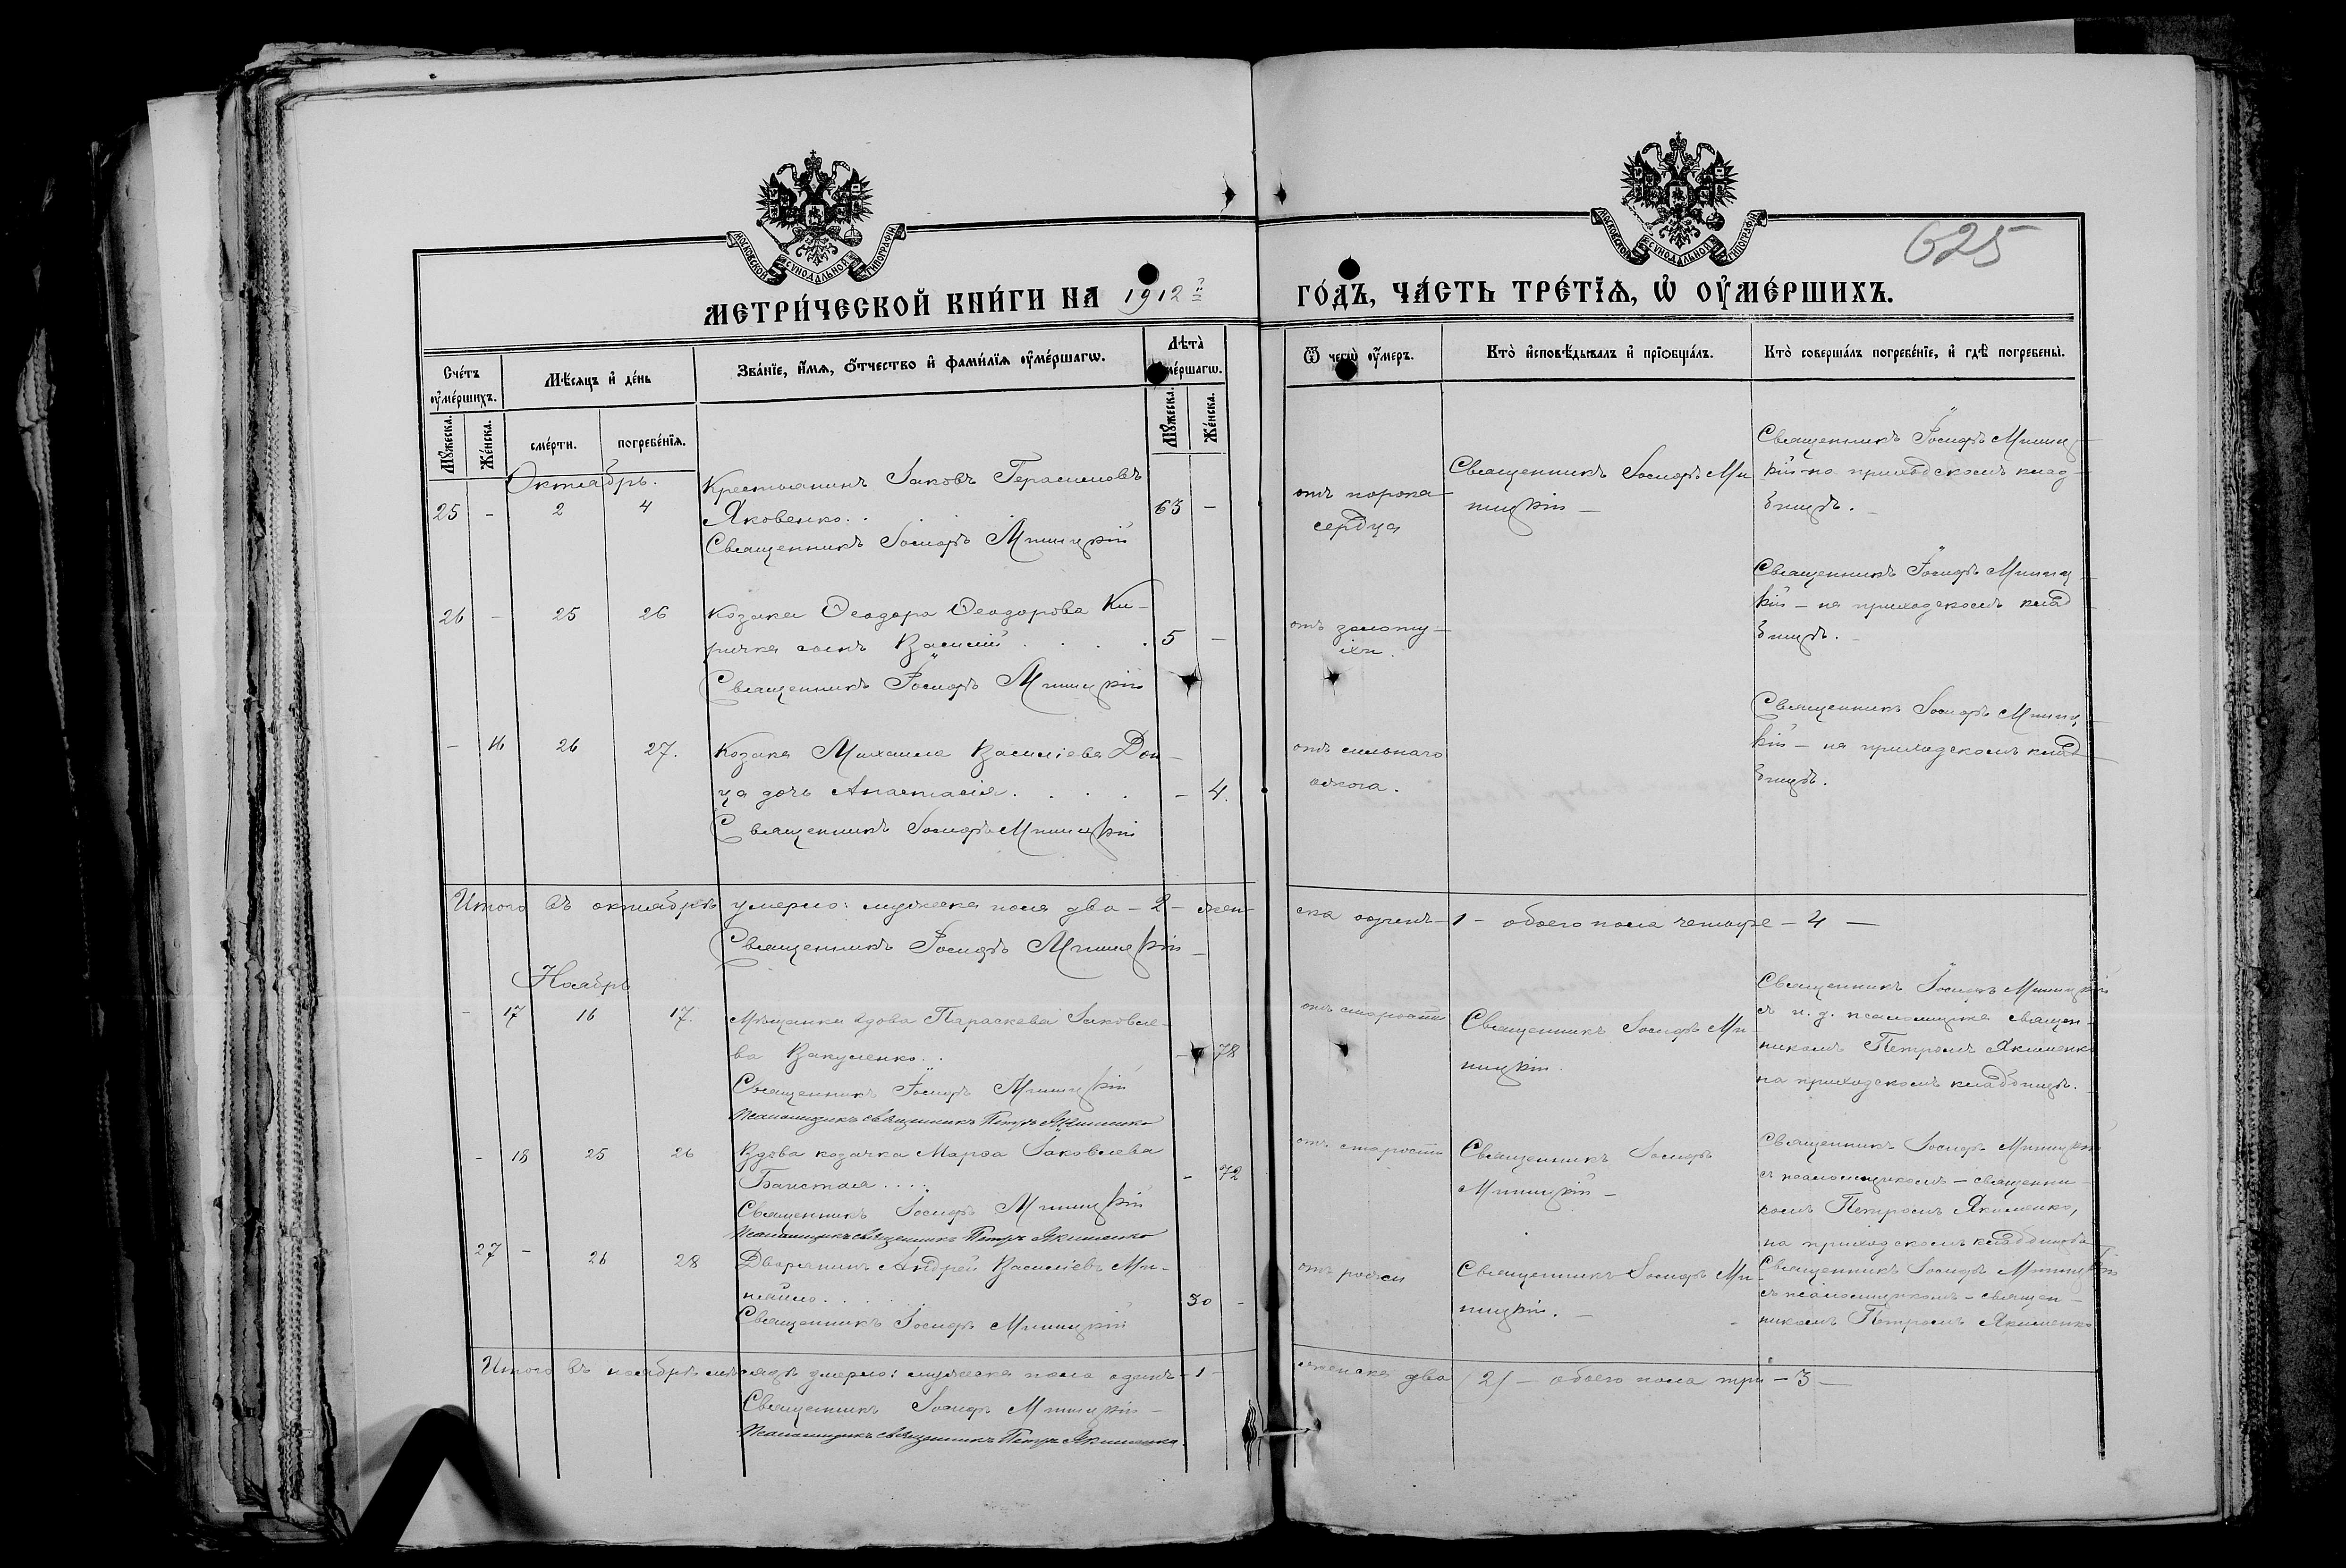 МОСКОВСКОЙ СѴНОДАЛЬНОЙ ТИПОГРАФІИ
МОСКОВСКОЙ СѴНОДАЛЬНОЙ ТИПОГРАФІИ
625
МЕТРИ́ЧЕСКОЙ КНИ́ГИ НА 1912 й ГО́ДЪ, ЧА́СТЬ ТРЕ́ТІѦ, Ѡ҆ ОУ҆МЕ́РШИХЪ.
Сче́тъ оу҆ме́ршихъ.
Мѣ́сяцъ и҆ де́нь
Зва́нїе, и҆́мѧ, ѻ҆́тчество и҆ фами́лїѧ оу҆ме́ршагѡ.
Лѣта̀ оу҆ме́ршагѡ.
Ѿ чегѡ̀ оу҆́меръ.
Кто̀ и҆сповѣ́дывалъ и҆ прїѡбща́лъ.
Кто̀ соверша́лъ погребе́нїе, и҆ гдѣ̀ погребены̀.
Мꙋ́жеска. Же́нска. сме́рти. погребе́нїѧ. Мꙋ́жеска. Же́нска.
Октябрь.
25 - 2 4
Крестьянинъ Іаковъ Герасимовъ
Яковенко. 63 -
Священникъ Іосифъ Мишицкій
отъ порока
сердца
Священникъ Іосифъ Ми
шицкій -
Священникъ Іосифъ Мишиц
кій на приходскомъ клад
бищѣ. -
26 - 25 26
Козака Ѳеодора Ѳеодорова Ки-
ричка сынъ Василій 5 -
Священникъ Іосифъ Мишицкій
отъ золоту-
хи.
Священникъ Іосифъ Мишиц
кій - на приходскомъ клад
бищѣ. -
- 16 26 27.
Козака Михаила Василіева Дон-
ца дочь Анастасія. - 4.
Священникъ Іосифъ Мишицкій
отъ сильнаго
ожога.
Священникъ Іосифъ Мишиц
кій - на приходскомъ клад
бищѣ.
Итого въ октябрѣ умерло: мужеска пола два - 2 - жен-
ска одинъ - 1 - обоего пола четыре - 4 -
Священникъ Іосифъ Мишицкій -
Ноябрь
- 17 16 17.
Мѣщанка вдова Параскева Іаковле-
ва Вакуленко. - 78
Священникъ Іосифъ Мишицкій
Псаломщикъ священникъ Петръ Якименко
отъ старости
Священникъ Іосифъ Ми-
шицкій.
Священникъ Іосифъ Мишицкій
съ и. д. псаломщика священ-
никомъ Петромъ Якименко
на приходскомъ кладбищѣ.
- 18 25 26
Вдова козачка Марѳа Іаковлева
- 72
Священникъ Іосифъ Мишицкій
Псаломщикъ священникъ Петръ Якименко
отъ старости
Священникъ Іосифъ
Мишицкій -
Священникъ Іосифъ Мишицкій
съ псаломщикомъ - священни-
комъ Петромъ Якименко,
на приходскомъ кладбищѣ
27 - 26 28
Дворянинъ Андрей Василіевъ Ми-
30 -
Священникъ Іосифъ Мишицкій
отъ рожи
Священникъ Іосифъ Ми-
шицкій. -
Священникъ Іосифъ Мишицкій
съ псаломщикомъ - священ-
никомъ Петромъ Якименко
Итого въ ноябрѣ мѣсяцѣ умерло: мужеска пола одинъ - 1 -
женска два (2) - обоего пола три - 3 -
Священникъ Іосифъ Мишицкій -
Псаломщикъ священникъ Петръ Якименко.